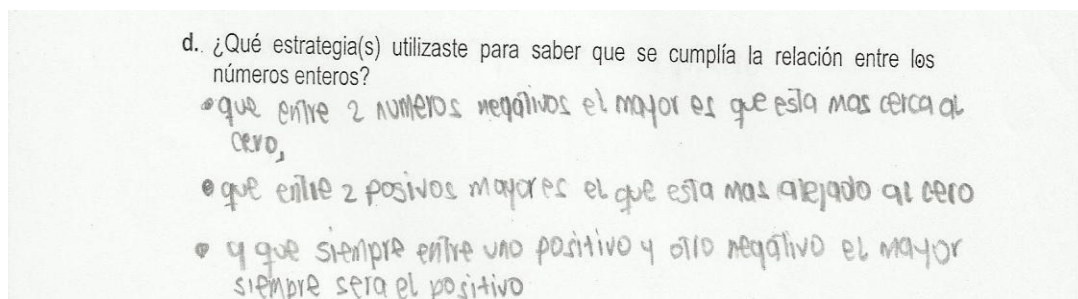 d. ¿Qué estrategia(s) utilizaste para saber que se cumplía la relación entre los
números enteros?
•que entre 2 numeros negativos el mayor es que esta mas cerca al
cero,
•que entre 2 posivos mayores el que esta mas alejado al cero
• y que siempre entre uno positivo y otro negativo el mayor
siempre sera el positivo